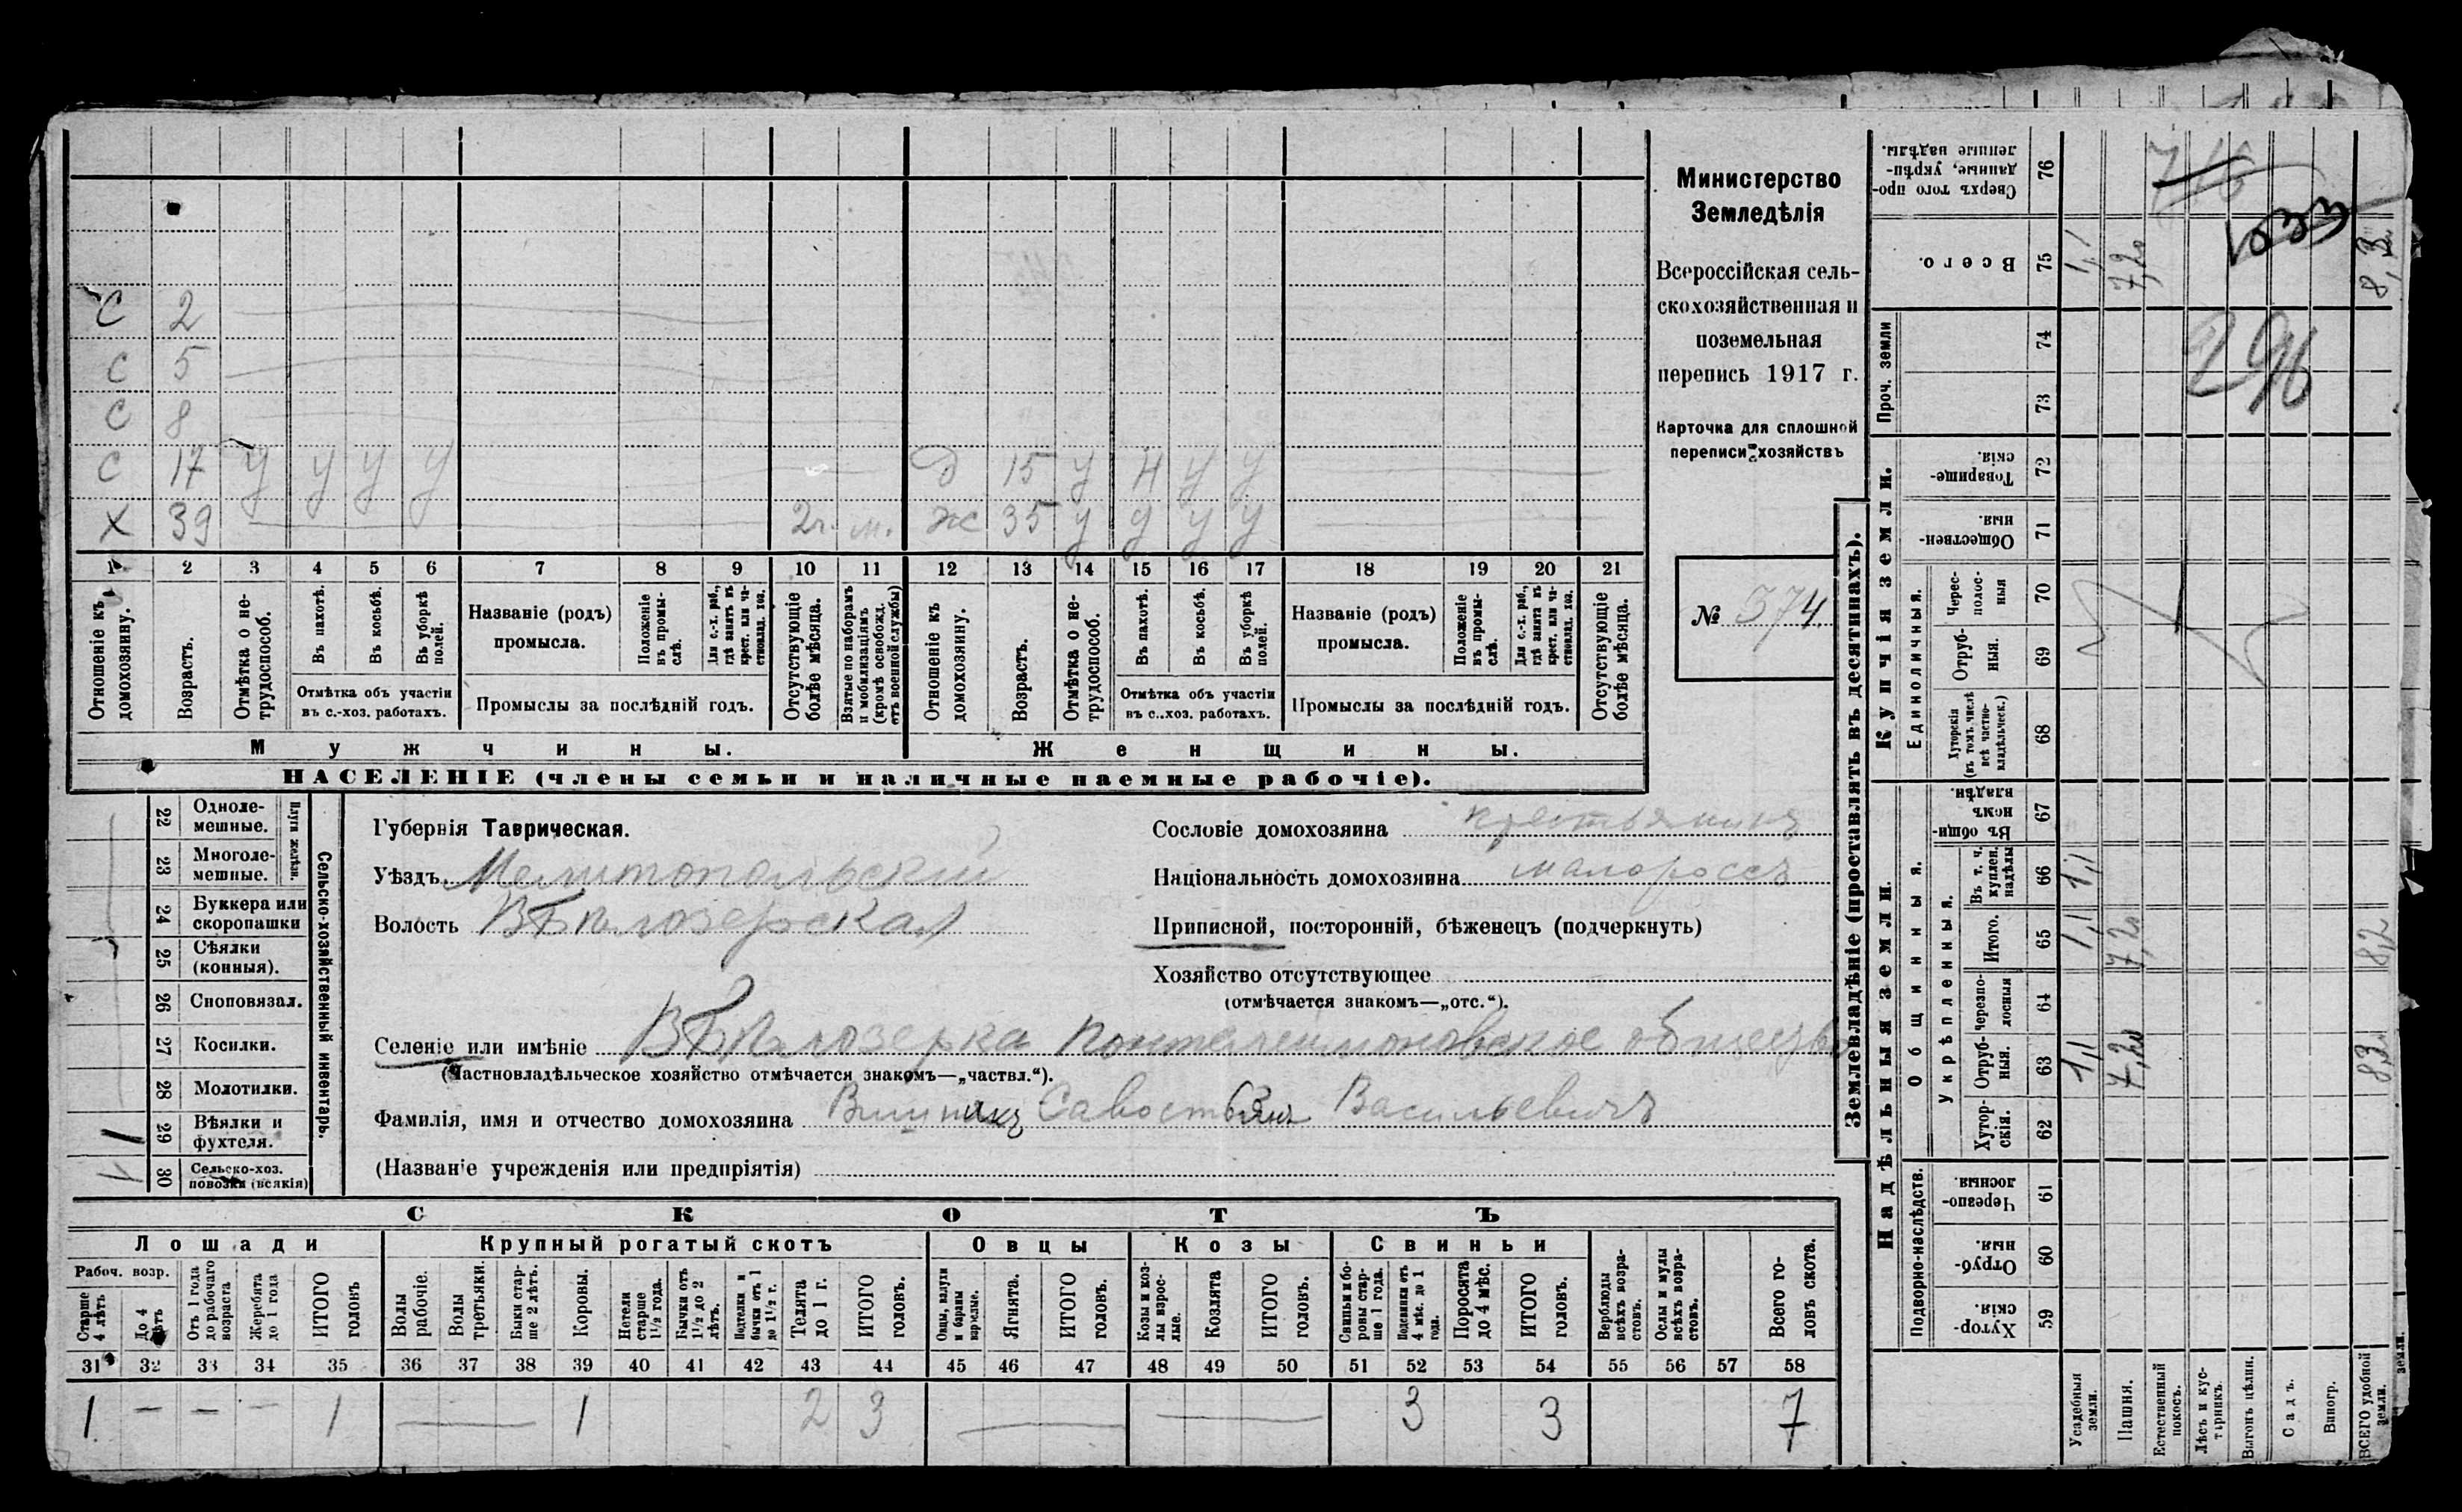 С 2
С 5
С 8
С 17 у у у у д 15 у н у у
Х 39 2 г. м. ж 35 у у у у
1 2 3 4 5 6 7 8 9 10 11 12 13 14 15 16 17 18 19 20 21
Отношеніе къ домохозяину.
Возрастъ.
Отмѣтка о не-
трудоспособ.
Въ пахотѣ.
Въ косьбѣ.
Въ уборкѣ полей.
Отмѣтка объ участіи
въ с.-хоз. работахъ.
Названіе (родъ)
промысла.
Положеніе въ промы-
слѣ.
Для с.-х. раб., гдѣ занятъ въ крест. или ча-
стновлад. хоз.
Промыслы за послѣдній годъ.
Отсутствующіе болѣе мѣсяца.
Взятые по наборамъ и мобилизаціямъ (кромѣ освобожд. отъ военной службы)
Отношеніе къ домохозяину.
Возрастъ.
Отмѣтка о не-
трудоспособ.
Въ пахотѣ.
Въ косьбѣ.
Въ уборкѣ полей.
Отмѣтка объ участіи
въ с..хоз. работахъ.
Названіе (родъ)
промысла.
Положеніе въ промы-
слѣ.
Для с.-х. раб., гдѣ занятъ въ крест. или ча-
стновлад. хоз.
Промыслы за послѣдній годъ.
Отсутствующіе болѣе мѣсяца.
Мужчины. Женщины.
НАСЕЛЕНІЕ (члены семьи и наличные наемные рабочіе).
Министерство
Земледѣлія
Всероссійская сель-
скохозяйственная и
поземельная
перепись 1917 г.
Карточка для сплошной
переписи хозяйствъ
№ 574.
22 Одноле-
мешные.
23 Многоле-
мешные.
Плуги желѣзн.
24 Буккера или
скоропашки
25 Сѣялки
(конныя).
26 Сноповязал.
27 Косилки.
28 Молотилки.
29 Вѣялки и
фухтеля. 1
30 Сельско-хоз.
повозки (всякія) 1
Сельско-хозяйственный инвентарь.
Губернія Таврическая.
Уѣздъ Мелитопольский
Волость В Бѣлозерская
Сословіе домохозяина крестьянинъ
Національность домохозяина малороссъ
Приписной, посторонній, бѣженецъ (подчеркнуть)
Хозяйство отсутствующее
(отмѣчается знакомъ—„отс.“).
Селеніе или имѣніе В Бѣлозерка Пантелеимоновское общество
(Частновладѣльческое хозяйство отмѣчается знакомъ—„частвл.“).
Фамилія, имя и отчество домохозяина Савостьянъ Васильевичъ
(Названіе учрежденія или предпріятія)
СКОТЪ
Лошади Крупный рогатый скотъ Овцы Козы Свиньи
Рабоч. возр.
Старше 4 лѣтъ
До 4 лѣтъ
Отъ 1 года до рабочаго возраста
Жеребята до 1 года
ИТОГО головъ
Волы рабочіе.
Волы третьяки.
Быки стар-
ше 2 лѣтъ.
Коровы.
Нетели старше 1½ года.
Бычки отъ 1½ до 2 лѣтъ.
Подтелки и бычки отъ 1 до 1½ г.
Телята до 1 г.
ИТОГО головъ.
Овцы, валухи и бараны взрослые.
Ягнята.
ИТОГО головъ.
Козы и коз-
лы взрос-
лые.
Козлята
ИТОГО головъ.
Свиньи и бо-
ровы стар-
ше 1 года.
Подсвинки отъ 4 мѣс. до 1 года.
Поросята до 4 мѣс.
ИТОГО головъ.
Верблюды всѣхъ возра-
стовъ.
Ослы и мулы всѣхъ возра-
стовъ.
Всего го-
ловъ скота.
31 32 33 34 35 36 37 38 39 40 41 42 43 44 45 46 47 48 49 50 51 52 53 54 55 56 57 58
1 — — — 1 — 1 2 3 — — 3 3 7
Землевладѣніе (проставлять въ десятинахъ).
Купчія земли.
Надѣльныя земли.
Сверхъ того про-
данные, укрѣп-
ленные надѣлы. 76
Всего. 75 1,1 7,20 8,3
Проч. земли 74 73
Товарище-
скія. 72
Обществен-
ныя. 71
Единоличныя.
Черес-
полос-
ныя 70
Отруб-
ныя. 69
Хуторскія (въ томъ числѣ всѣ частно-
владѣльческ.) 68
Общинныя.
Въ общи-
номъ владѣн. 67
Укрѣпленныя.
Въ т. ч. куплен. надѣлы 66 1,1
Итого. 65 1,1 7,20 8,2
Черезпо-
лосныя 64
Отруб-
ныя. 63 1,1 7,20 8,3
Хутор-
скія. 62
Подворно-наслѣдств.
Черезпо-
лосныя. 61
Отруб-
ныя. 60
Хутор-
скія. 59
Усадебныя земли.
Пашня.
Естественный покосъ.
Лѣсъ и кус-
тарникъ.
Выгонъ цѣлин.
Садъ.
Виногр.
ВСЕГО удобной земли.
716
296